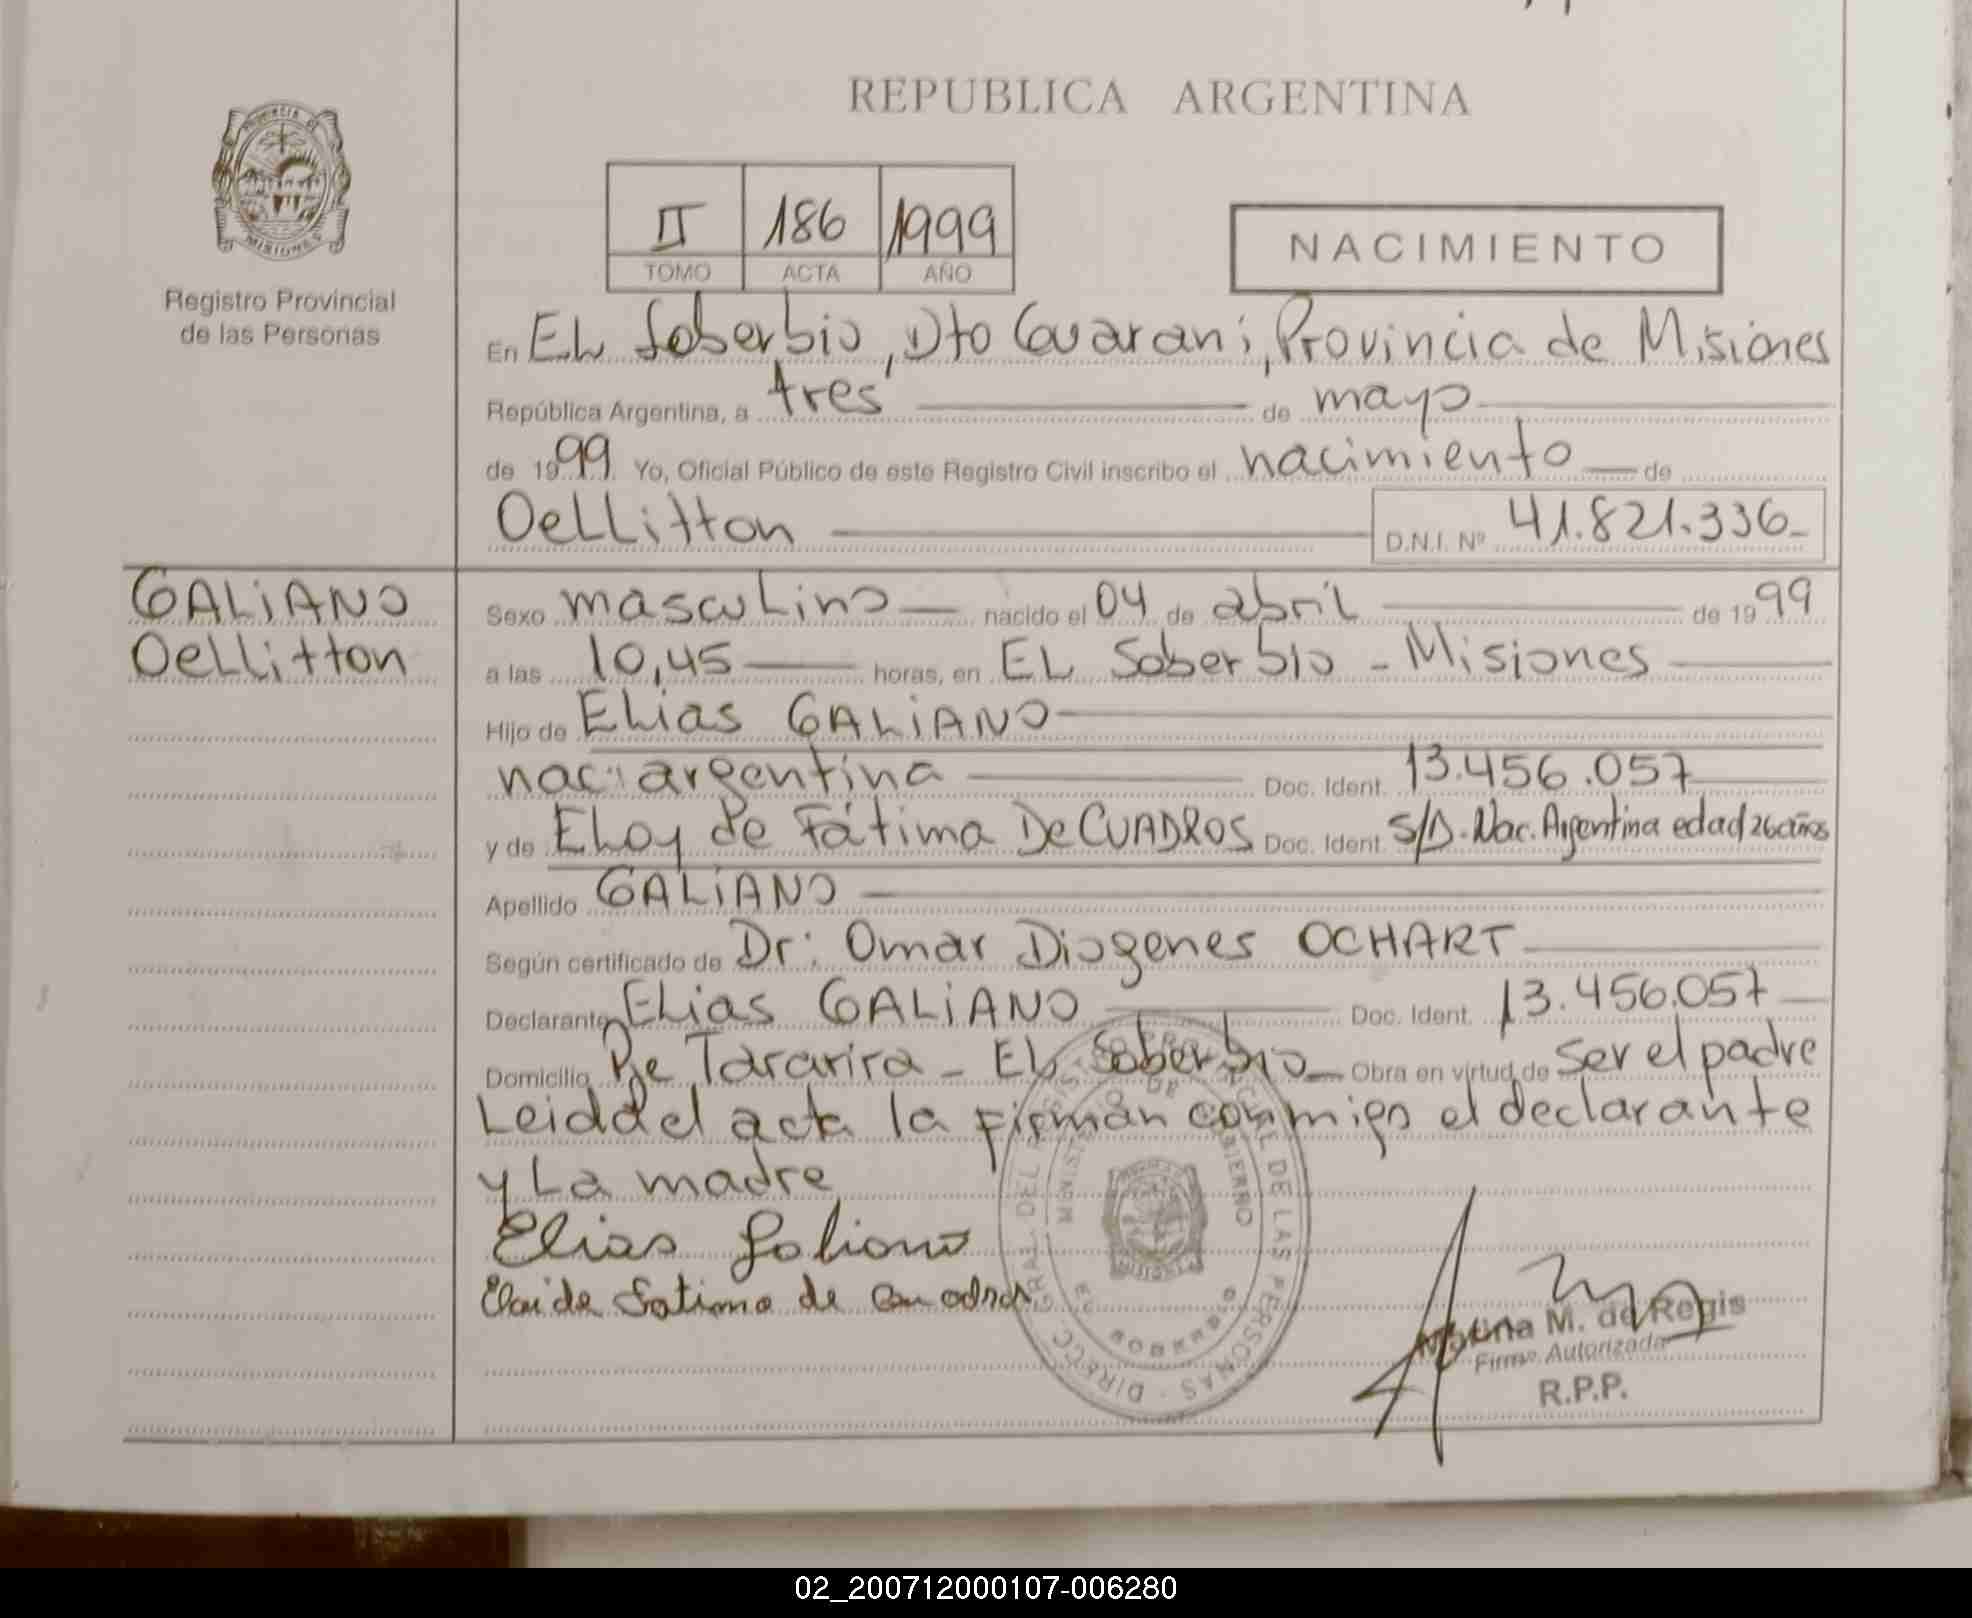 REPUBLICA ARGENTINA
PROVINCIA DE
MISIONES
Registro Provincial
de las Personas
II 186 1999
TOMO ACTA AÑO
NACIMIENTO
En EL Soberbio, Dto Guarani, Provincia de Misiones
República Argentina, a tres de mayo
de 1999 Yo, Oficial Público de este Registro Civil inscribo el nacimiento de
Oellitton D.N.I. Nº 41.821.336
GALiANO
Oellitton
Sexo masculino nacido el 04 de abril de 1999
a las 10,45 horas, en EL Soberbio - Misiones
Hijo de Elias GALiANO
nac: argentina Doc. Ident. 13.456.057
y de Eloy de Fátima De CUADROS Doc. Ident. S/D. Nac. Argentina edad 26 años
Apellido GALiANO
Según certificado de Dr: Omar Diogenes OCHART
Declarante Elias GALiANO Doc. Ident. 13.456.057
Domicilio Pje Tararira - EL Soberbio Obra en virtud de ser el padre
Leida el acta la firman conmigo el declarante
y La madre
Elias Galiano
Eloi de Fatima de Cuadros
DIRECC. GRAL. DEL REGISTRO PROVINCIAL DE LAS PERSONAS
MINISTERIO DE GOBIERNO
EL SOBERBIO
M. de Regis
Firma Autorizada
R.P.P.
02_200712000107-006280